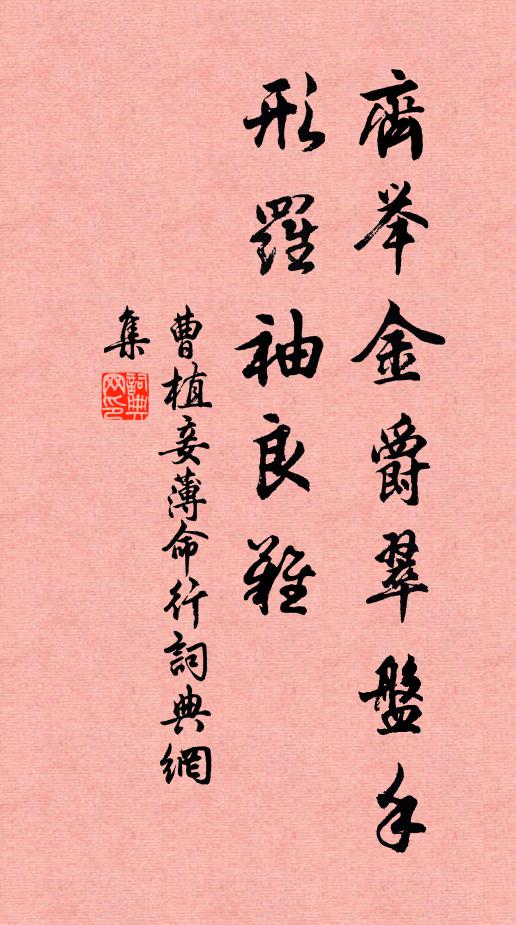 齊举金爵翠盤手
形羅袖良難
曹植妾薄命行詞典網
集
詞典
网印